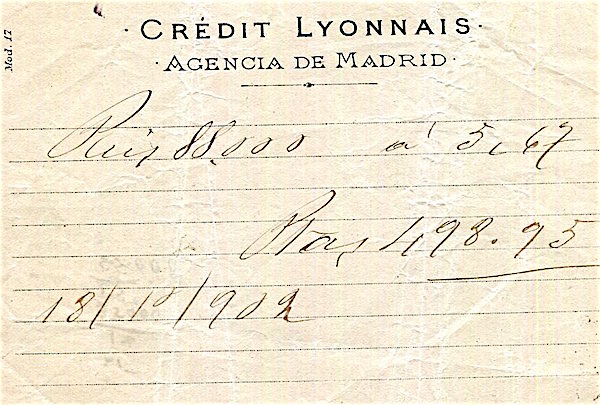 Mod. 17
· CRÉDIT LYONNAIS ·
· AGENCIA DE MADRID ·
Reis 88.000 á 5,67
Ptas 498.95
18/10/902